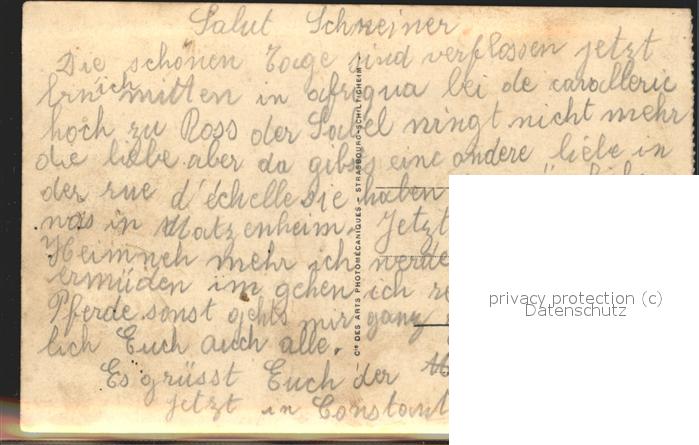 Salut Schreiner
Die schönen Tage sind verflossen jetzt
bin ich mitten in afriqua bei de cavallerie
hoch zu Ross der Säbel nicht mehr
die liebe aber da gibs eine andere liebe in
der rue d'échelle sie haben
was in Matzenheim. Jetzt
mehr ich werde
ermüden im gehen ich
Pferde sonst gehts mir ganz
lich Euch auch alle.
Es grüsst Euch der
jetzt in Constant
Cie DES ARTS PHOTOMÉCANIQUES - STRASBOURG-SCHILTIGHEIM
privacy protection (c)
Datenschutz